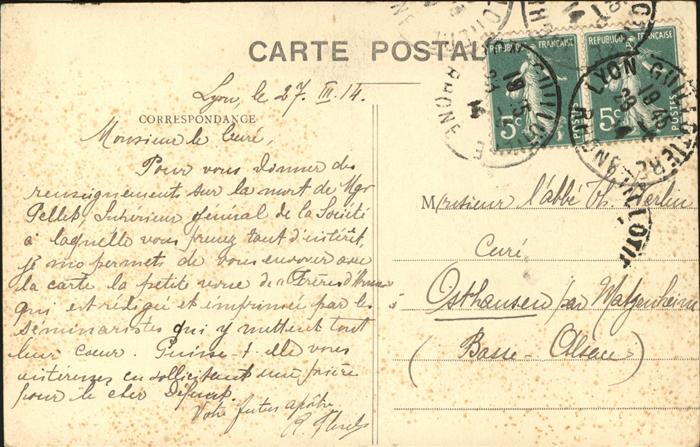 CARTE POSTALE
REPUBLIQUE FRANÇAISE
5c POSTES
REPUBLIQUE FRANÇAISE
5c POSTES
LYON GUILLOTIERE
RHONE
CORRESPONDANCE
Lyon, le 27. III. 14.
Monsieur le Curé,
Pour vous donner des
renseignements sur la mort de Mgr
Pellet, Supérieur général de la Société
à laquelle vous prenez tant d'intérêt,
je me permets de vous envoyer avec
la carte la petite revue des "Frères d'Armes
qui est rédigée et imprimée par les
séminaristes qui y mettent tout
leur cœur. Puisse-t-elle vous
intéresser en sollicitant une prière
pour le cher Défunt.
Votre futur apôtre
Monsieur l'abbé Th.
Curé
à Osthausen par Matzenheim
(Basse-Alsace)